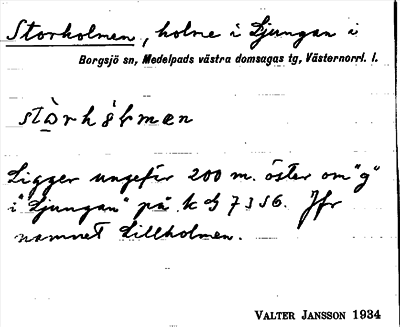 Storholmen, holme i Ljungan i
Borgsjö sn, Medelpads västra domsagas tg, Västernorrl. l.
Ligger ungefär 200 m. öster om "g"
i "Ljungan" på k 7356. Jfr
namnet Lillholmen.
VALTER JANSSON 1934